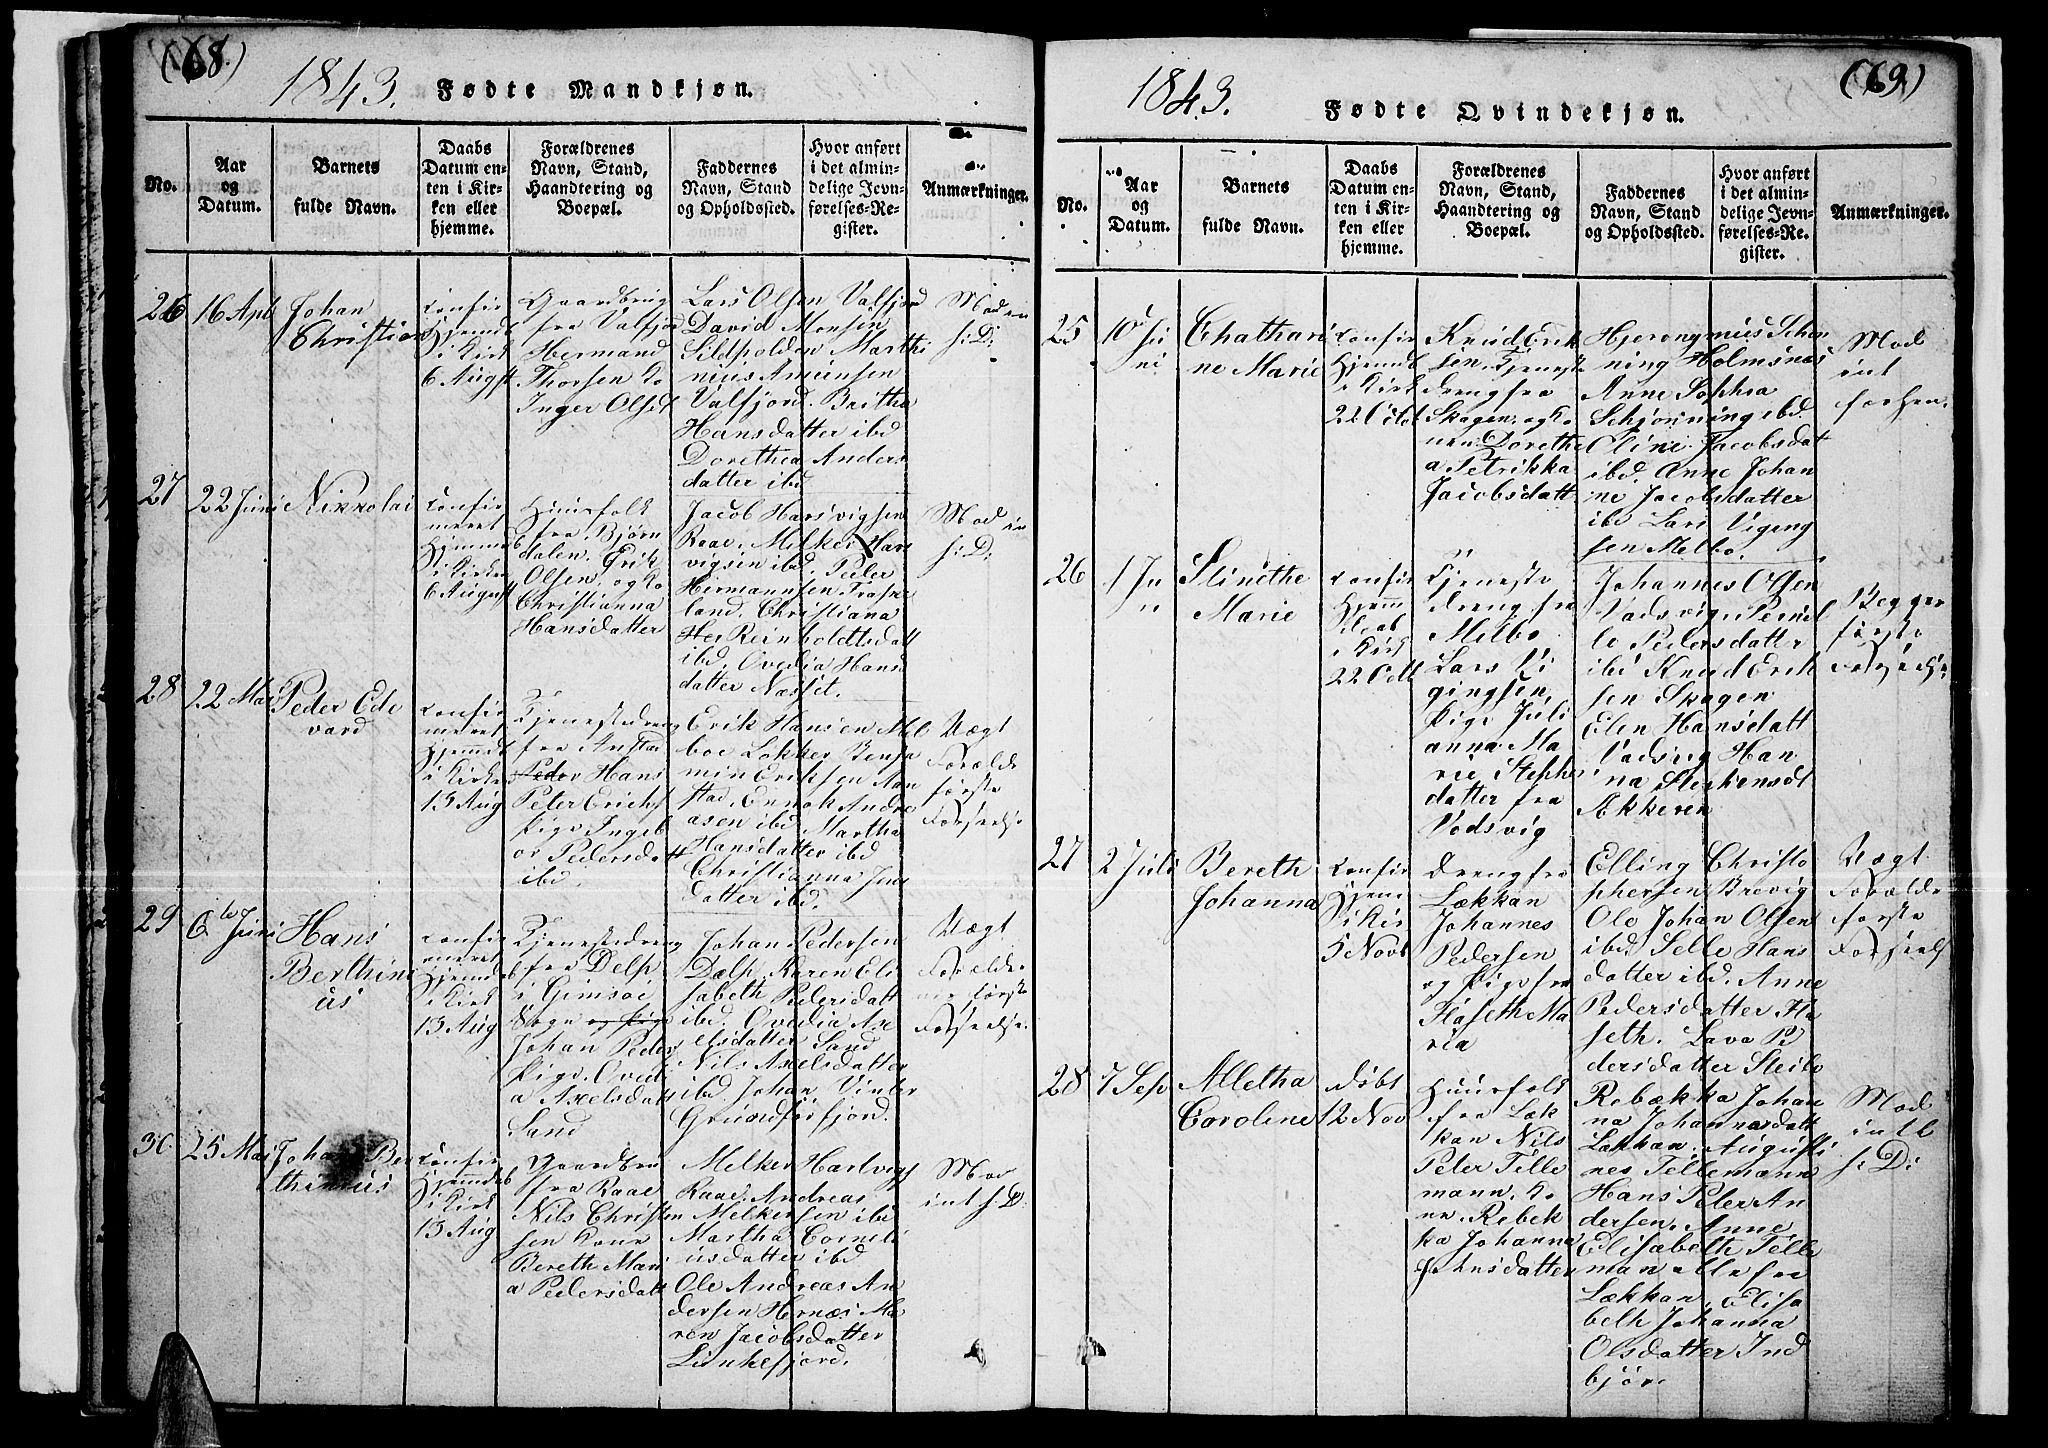 (68.)
1843. Fødte Mandkjøn.
No.
Aar
og
Datum.
Barnets
fulde Navn.
Daabs
Datum en-
ten i Kir-
ken eller
hjemme.
Forældrenes
Navn, Stand,
Haandtering og
Boepæl.
Faddernes
Navn, Stand
og Opholdssted.
Hvor anført
i det almin-
delige Jevn-
førelses-Re-
gister.
Anmærkninger.
26
16 Apl
Johan
Christian
confir
Hjemdt
i Kirk
6 Augst
Gaardbrug
fra Valfjord
Hermand
Thorsen Ko
Inger Olsdt
Lars Olsen Valfjord
David Monsen
Sildpolden Marthi
nius Amunsen
Valfjord. Britha
Hansdatter ibd
Dorethea Anders
datter ibd
Mod in
s: D:
27
22 Juni
Nikkolai
confir
meret
Hjemme
i Kirke
6 August
Huusfolk
fra Bjørn
dalen. Erik
Olsen, og Ko
Christianna
Hansdatter
Jacob Harsvigsen
Raae. Melker Har
vigsen ibd. Peder
Hermannsen
land. Christiana
Reinholdtsdatt
ibd. Ovedia Hans
datter Næsset.
Mod in
s: D:
28
22 Mai
Peder Ede
vard
confir
meret
Hjemdt
i Kirke
13 Aug
Tjenestedreng
fra Anstad
Peder Hans
Peter Erichs
Pige Ingeb
or Pedersdatt
ibd.
Erik Hansen Mel
boe Lokker Benja
min Eriksen Aan
stad. Ennok Andre
asen ibd Martha
Hansdatter ibd
Christianna Jens
datter ibd.
Uægt
Forælde
første
Forseelse
29
6te Juni
Hans
Berthine
us
confir
meret
Hjemdt
i Kirk
13 Aug
Tjenestedreng
fra Delp
i Gimsøi
Sogn og Pige
Johan Peder
Pige. Ovedi
a Axelsdatt
Sand
Johan Pedersen
Delp. Karen Eli
sabeth Pedersdatt
ibd. Ovedia Ax
elsdatter Sand
Nils Axelsdatter
ibd. Johan Vinter
Grundførfjord.
Uægt
Forælder
første
Forseelse.
30
25 Mai
Johan Ber
thinius
confir
Hjemdt
i Kirk
13 Aug
Gaardbru
fra Raae
Nils Christen
sen Kone
Bereth Mari
a Pedersdatt
Melker Hartvigs
Raae. Andreas
Melkersen ibd
Martha Corneli
usdatter ibd
Ole Andreas An
dersen Hernæs Ma
ren Jacobsdatter
Lunkefjord.
Mod
int s: D:
(69)
1843. Fødte Qvindekjøn.
No.
Aar
og
Datum.
Barnets
fulde Navn.
Daabs
Datum en-
ten i Kir-
ken eller
hjemme.
Forældrenes
Navn, Stand,
Haandtering og
Boepæl.
Faddernes
Navn, Stand
og Opholdssted.
Hvor anført
i det almin-
delige Jevn-
førelses-Re-
gister.
Anmærkninger.
25
10 Ju
ni
Chathari
ne Marie
confir
Hjemdt
i Kirk
22 Octb
Knud Erik
sen, Tjeneste
dreng fra
Skagen. og Ko
nen Dorethe
a Petrikka
Jacobsdatt
Hjeronymus Schon
ning Holmsnes
Anne Sophia
Schjonning ibd.
Oline Jacobsdat
ibd. Anne Johan
ne Jacobsdatter
ibd Lars Vigeng
sen Melbo.
Mod
int
forhen.
26
1 Ju
Stinethe
Marie
confir
Hjemm
i Kirk
22 Octb
Tjeneste
dreng fra
Melbo
Lars Vi
gingsen,
Pige Juli
anna Ma
rie Stephen
datter fra
Vodsvig
Johannes Olsen
Vadsvig. Pernil
le Pedersdatter
ibd Knud Erik
sen Skagen
Elen Hansdatt
Vadsvig Han
na Stephensdt
Akkeren
Begges
første
Forseelse
27
2 Juli
Bereth
Johanna
confir
Hjem
i Kir
5 Novb
Dreng fra
Lækkan
Johannes
Pedersen
og Pige fra
Flæseth Ma
ria
Elling Christo
phersen Brevig
Ole Johan Olsen
ibd. Selle Hans
datter ibd. Anne
Pedersdatter Fla
seth. Lava P
dersdatter Steilo
Uægt
Forælde
første
Forseels
28
7 Sep
Alletha
Caroline
døbt
12 Nov
Huusfolk
fra Læk
kan Nils
Peter Tille
mann, Ko
ne. Rebek
ka Johanna
Johnsdatter
Rebækka Johan
na Johannesdatt
Lækkan. Augusti
nes Tellemann
Hans Peter An
dersen. Anne
Elisabeth Tille
man alle fra
Lækkan. Elisa
beth Johanna
Olsdatter Ind
bjør
Mod
intb
s: D: